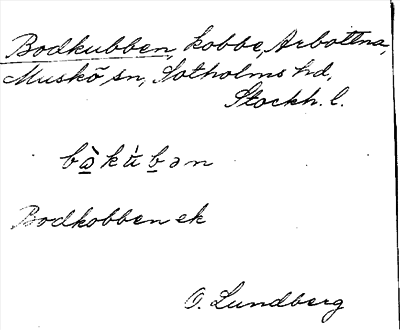 Bodkubben, kobbe, Arbottna,
Muskö sn, Sotholms hd,
Stockh. l.
bὰ̱kù̱ḇən
Bodkobben ek
O. Lundberg